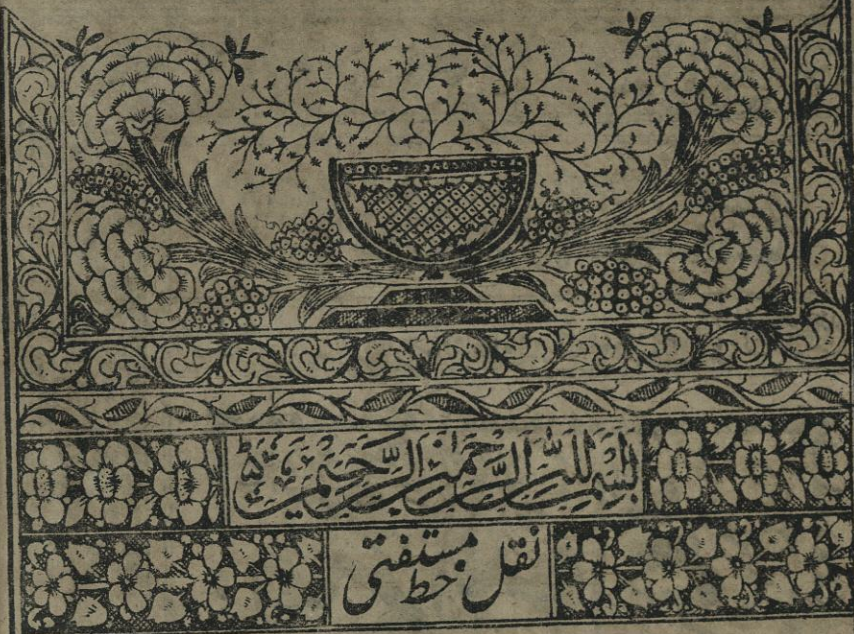 بسم الله الرحمن الرحیم
نقل خط مستفتی